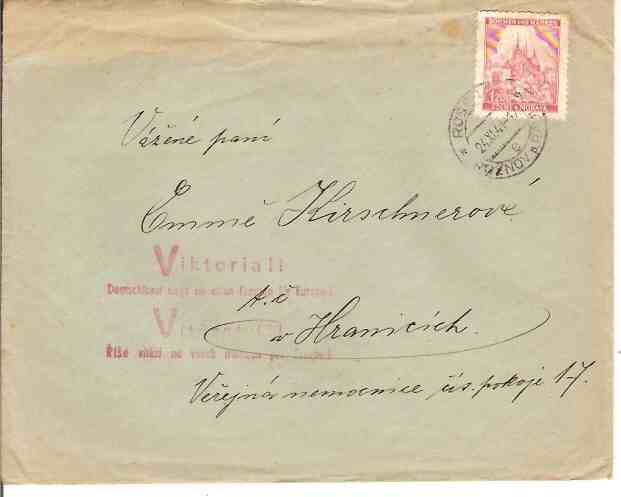 BÖHMEN UND MÄHREN
ČECHY A MORAVA
ROŽNOV
24.XI.41
Vážené paní
Emmě Kirschnerové
Viktoria!!
Deutschland siegt an allen Fronten für Europa!
t.č.
v Hranicích.
Říše vítězí na všech frontách pro Evropu!
Veřejná nemocnice čís. pokoje 17.